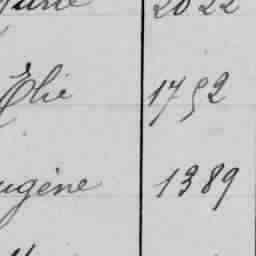 2022
Élie 1752
ugène 1389